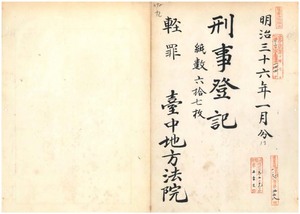 明治三十六年一月份
刑事登記
紙數六拾七枚
輕罪
臺中地方法院